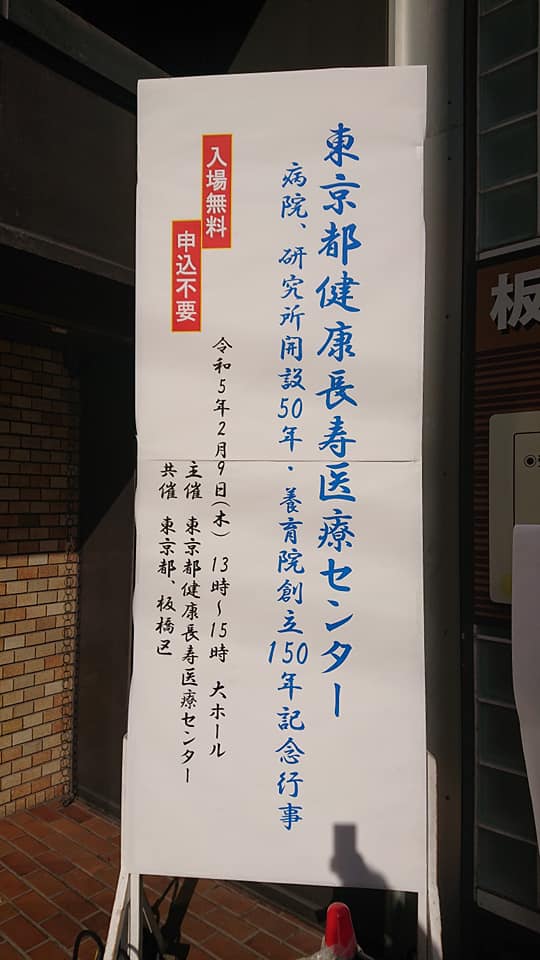 東京都健康長寿医療センター
病院、研究所開設50年・養育院創立150年記念行事
入場無料
申込不要
令和5年2月9日(木) 13時～15時 大ホール
主催 東京都健康長寿医療センター
共催 東京都、板橋区
板